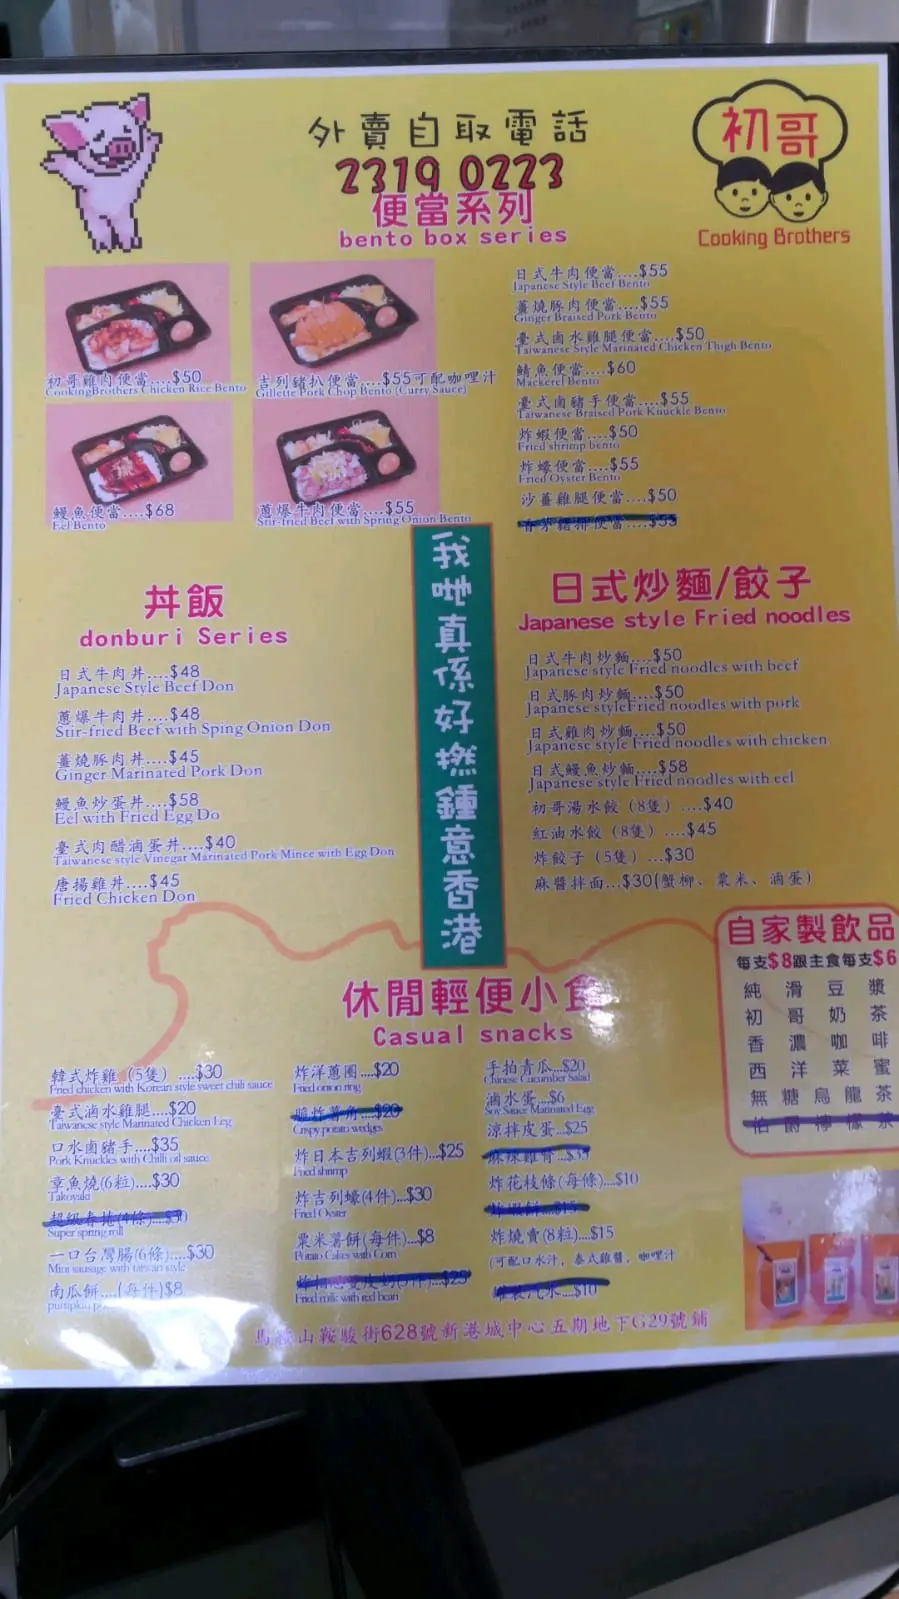 外賣自取電話
2319 0223
初哥
Cooking Brothers
便當系列
bento box series
初哥雞肉便當....$50
CookingBrothers Chicken Rice Bento
吉列豬扒便當....$55可配咖哩汁
Gillette Pork Chop Bento (Curry Sauce)
鰻魚便當....$68
Eel Bento
蔥爆牛肉便當....$55
Stir-fried Beef with Spring Onion Bento
日式牛肉便當....$55
Japanese Style Beef Bento
薑燒豚肉便當....$55
Ginger Braised Pork Bento
臺式鹵水雞腿便當....$50
Taiwanese Style Marinated Chicken Thigh Bento
鯖魚便當....$60
Mackerel Bento
臺式鹵豬手便當....$55
Taiwanese Braised Pork Knuckle Bento
炸蝦便當....$50
Fried shrimp bento
炸蠔便當....$55
Fried Oyster Bento
沙薑雞腿便當....$50
香茅豬排便當....$55
我哋真係好撚鍾意香港
丼飯
donburi Series
日式牛肉丼....$48
Japanese Style Beef Don
蔥爆牛肉丼....$48
Stir-fried Beef with Sping Onion Don
薑燒豚肉丼....$45
Ginger Marinated Pork Don
鰻魚炒蛋丼....$58
Eel with Fried Egg Do
臺式肉醋滷蛋丼....$40
Taiwanese style Vinegar Marinated Pork Mince with Egg Don
唐揚雞丼....$45
Fried Chicken Don
日式炒麵/餃子
Japanese style Fried noodles
日式牛肉炒麵....$50
Japanese style Fried noodles with beef
日式豚肉炒麵....$50
Japanese styleFried noodles with pork
日式雞肉炒麵....$50
Japanese style Fried noodles with chicken
日式鰻魚炒麵....$58
Japanese style Fried noodles with eel
初哥湯水餃（8隻）....$40
紅油水餃（8隻）....$45
炸餃子（5隻）...$30
麻醬拌面...$30(蟹柳、粟米、滷蛋)
自家製飲品
每支$8跟主食每支$6
純滑豆漿
初哥奶茶
香濃咖啡
西洋菜蜜
無糖烏龍茶
伯爵檸檬茶
休閒輕便小食
Casual snacks
韓式炸雞（5隻）....$30
Fried chicken with Korean style sweet chili sauce
臺式滷水雞腿....$20
Taiwanese style Marinated Chicken Leg
口水鹵豬手....$35
Pork Knuckles with Chilli oil sauce
章魚燒(6粒)....$30
Takoyaki
超級春捲(4條)....$30
Super spring roll
一口台灣腸(6條)....$30
Mini sausage with taiwan style
南瓜餅....(每件)$8
pumpkin
炸洋蔥圈....$20
Fried onion ring
脆炸薯角....$20
Crispy potato wedges
炸日本吉列蝦(3件)...$25
Fried shrimp
炸吉列蠔(4件)...$30
Fried Oyster
粟米薯餅(每件)...$8
Potato Cakes with Corn
$25
Fried milk with red bean
手拍青瓜...$20
Chinese Cucumber Salad
滷水蛋...$6
Soy Sauce Marinated Egg
涼拌皮蛋...$25
麻辣雞腎...$35
炸花枝條(每條)...$10
炸蝦餅...$15
炸燒賣(8粒)...$15
(可配口水汁，泰式雞醬，咖哩汁
罐裝汽水....$10
馬鞍山鞍駿街628號新港城中心五期地下G29號舖